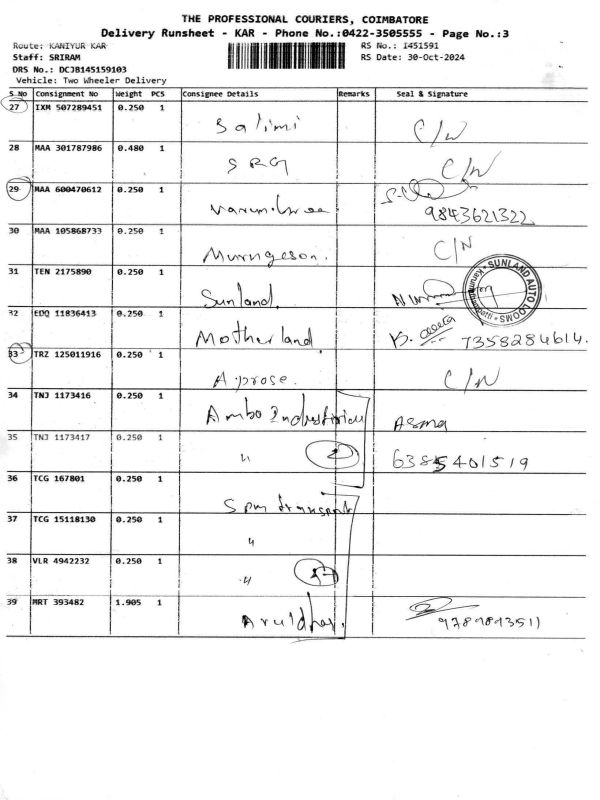 THE PROFESSIONAL COURIERS, COIMBATORE
Delivery Runsheet - KAR - Phone No.:0422-3505555 - Page No.:3
Route: KANIYUR KAR RS No.: I451591
Staff: SRIRAM RS Date: 30-Oct-2024
DRS No.: DCJB145159103
Vehicle: Two Wheeler Delivery
S No Consignment No Weight PCS Consignee Details Remarks Seal & Signature
27 IXM 507289451 0.250 1
Balimi C/N
28 MAA 301787986 0.480 1
SRG C/N
29 MAA 600470612 0.250 1
9843621322
30 MAA 105868733 0.250 1
Murugeson. C/N
31 TEN 2175890 0.250 1
Sunland.
SUNLAND AUTO LOOMS
32 EDQ 11836413 0.250 1
Motherland. 7358284614.
33 TRZ 125011916 0.250 1
A prose. C/N
34 TNJ 1173416 0.250 1
Ambo Industries Asma
35 TNJ 1173417 0.250 1
" 2 6385401519
36 TCG 167801 0.250 1
Spm transport
37 TCG 15118130 0.250 1
"
38 VLR 4942232 0.250 1
"
39 MRT 393482 1.905 1
Aruldhas. 9789893511